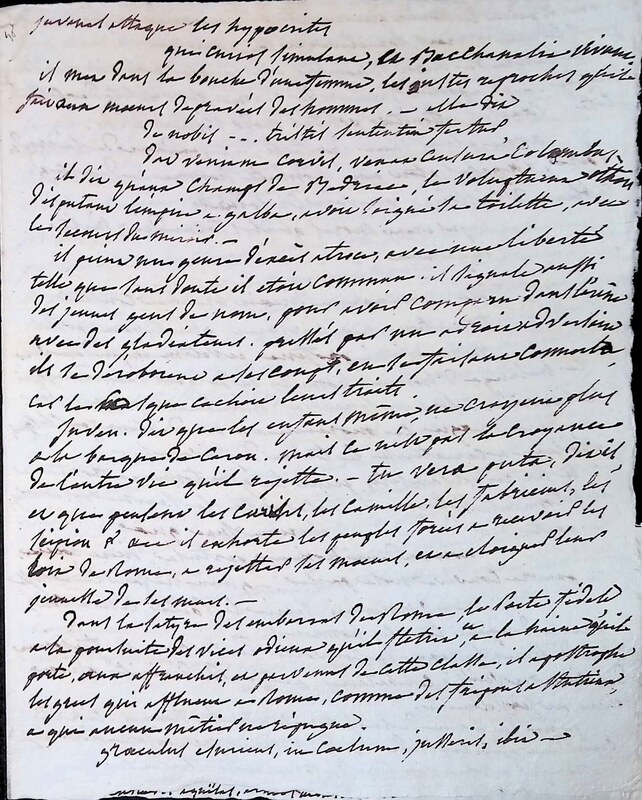 juvenal attaque les hypocrites
qui curios simulant, et Bacchanalia vivunt
il met dans la bouche d'une femme, les justes reproches qu'elle
fait aux moeurs dépravées des hommes. — elle dit
de nobis --- tristis sententia fertur
dat veniam corvis, vexat censura columbas
il dit qu'aux champs de Bédriac, le voluptueux othon
disputant l'empire a galba, avoit soigné sa toilette, avec
le secours du miroir. —
il peint un genre d'excès atroce, avec une liberté
telle que sans doute il étoit commun. il signale aussi
des jeunes gens de nom, pour avoir comparu dans l'arène
avec des gladiateurs. pressés par un adroit adversaire
ils se déroboient a ses coups, en se faisant connoitre
car le casque cachoit leurs traits.
juven. dit que les enfans même ne croyent plus
a la barque de Caron. mais ce n'est pas la croyance
de l'autre vie qu'il rejette. — tu vera puta, dit il
et que pensent les Curius, les Camille, les fabricius, les
scipion & il exhorte les peuples forcés a recevoir les
loix de Rome, a rejetter ses moeurs, et a eloigner leur
jeunesse de ses murs. —
Dans la satyre des embarras de Rome, le poete fidele
a la poursuite des vices odieux qu'il flétrit, et a la haine qu'il
porte, aux affranchis, et parvenus de cette classe, il apostrophe
les grecs qui affluent a Rome, comme des fripons
a qui aucun métier ne répugne.
graeculus esuriens, in Coelum, jusseris, ibit —